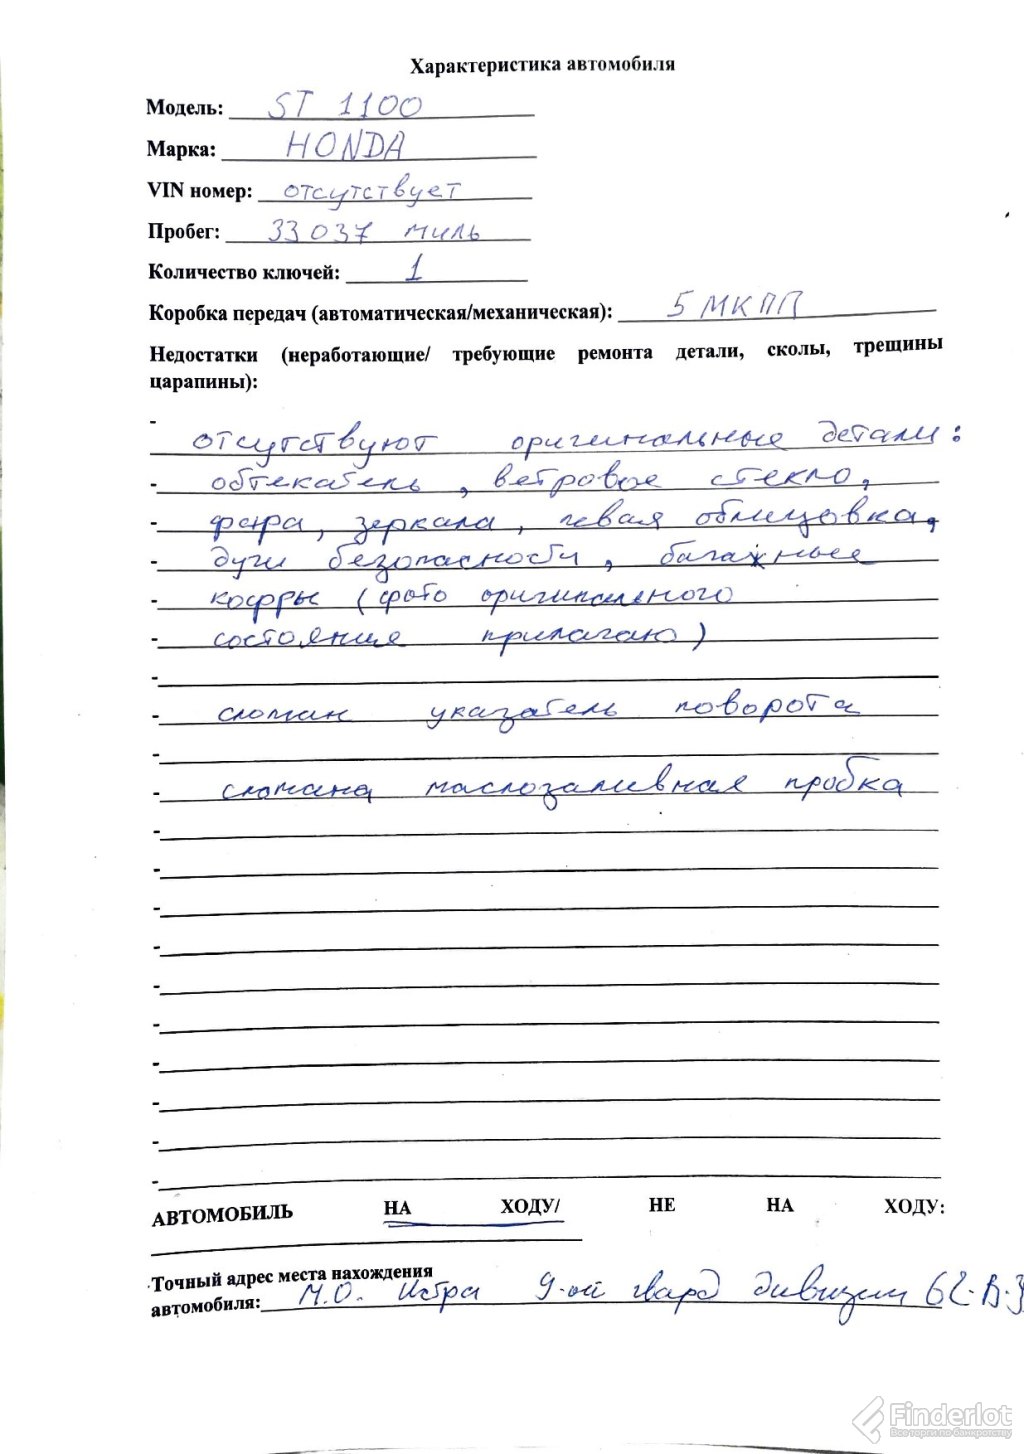 Характеристика автомобиля
Модель: ST 1100
Марка: HONDA
VIN номер: отсутствует
Пробег: 33037 миль
Количество ключей: 1
Коробка передач (автоматическая/механическая): 5 МКПП
Недостатки (неработающие/ требующие ремонта детали, сколы, трещины
царапины):
-
отсутствуют оригинальные детали:
- обтекатель, ветровое стекло,
- фара, зеркала, левая облицовка,
- дуги безопасности, багажные
- кофры (фото оригинального
- состояния прилагаю)
-
- сломан указатель поворота
-
- сломана маслозаливная пробка
-
-
-
-
-
-
-
-
-
-
АВТОМОБИЛЬ НА ХОДУ/ НЕ НА ХОДУ:
Точный адрес места нахождения
автомобиля: М.О. Истра 9-ой гвард дивизии
Finderlot
Все торги по банкротству